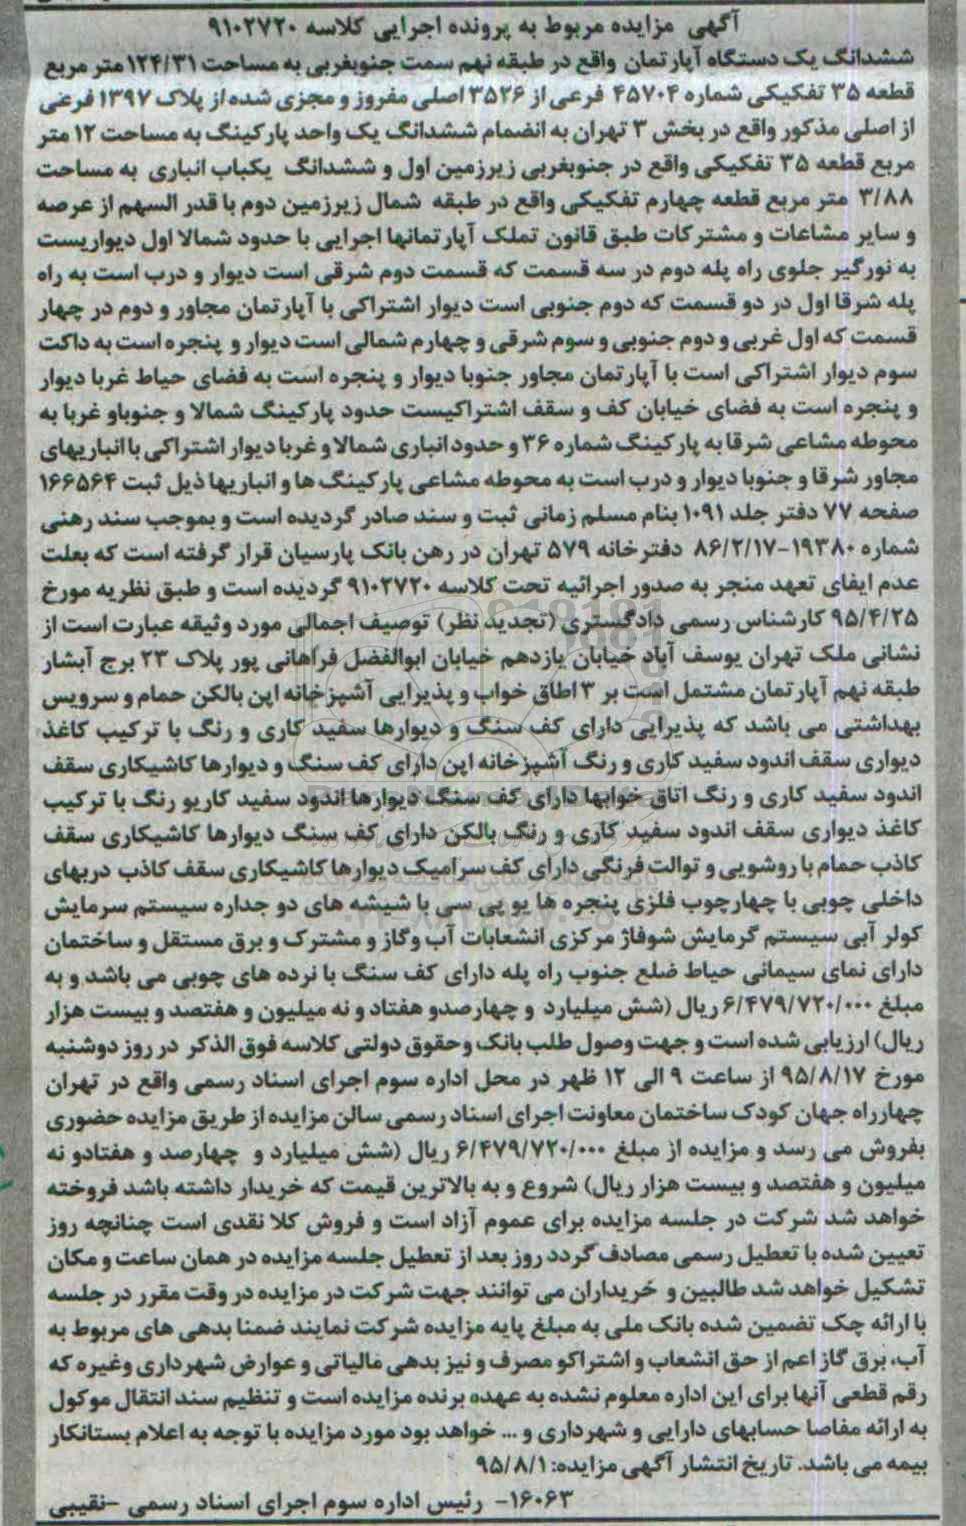 آگهی مزایده مربوط به پرونده اجرایی کلاسه ۹۱۰۲۷۲۰
ششدانگ یک دستگاه آپارتمان واقع در طبقه نهم سمت جنوبغربی به مساحت ۱۲۴/۳۱ متر مربع
قطعه ۳۵ تفکیکی شماره ۴۵۷۰۴ فرعی از ۳۵۲۶ اصلی مفروز و مجزی شده از پلاک ۱۳۹۷ فرعی
از اصلی مذکور واقع در بخش ۳ تهران به انضمام ششدانگ یک واحد پارکینگ به مساحت ۱۲ متر
مربع قطعه ۳۵ تفکیکی واقع در جنوبغربی زیرزمین اول و ششدانگ یکباب انباری به مساحت
۳/۸۸ متر مربع قطعه چهارم تفکیکی واقع در طبقه شمال زیرزمین دوم با قدر السهم از عرصه
و سایر مشاعات و مشترکات طبق قانون تملک آپارتمانها اجرایی با حدود شمالا اول دیواریست
به نورگیر جلوی راه پله دوم در سه قسمت که قسمت دوم شرقی است دیوار و درب است به راه
پله شرقا اول در دو قسمت که دوم جنوبی است دیوار اشتراکی با آپارتمان مجاور و دوم در چهار
قسمت که اول غربی و دوم جنوبی و سوم شرقی و چهارم شمالی است دیوار و پنجره است به داکت
سوم دیوار اشتراکی است با آپارتمان مجاور جنوبا دیوار و پنجره است به فضای حیاط غربا دیوار
و پنجره است به فضای خیابان کف و سقف اشتراکیست حدود پارکینگ شمالا و جنوباو غربا به
محوطه مشاعی شرقا به پارکینگ شماره ۳۶ و حدود انباری شمالا و غربا دیوار اشتراکی با انباریهای
مجاور شرقا و جنوبا دیوار و درب است به محوطه مشاعی پارکینگ ها و انباریها ذیل ثبت ۱۶۶۵۶۴
صفحه ۷۷ دفتر جلد ۱۰۹۱ بنام مسلم زمانی ثبت و سند صادر گردیده است و بموجب سند رهنی
شماره ۱۹۳۸۰-۸۶/۲/۱۷ دفترخانه ۵۷۹ تهران در رهن بانک پارسیان قرار گرفته است که بعلت
عدم ایفای تعهد منجر به صدور اجرائیه تحت کلاسه ۹۱۰۲۷۲۰ گردیده است و طبق نظریه مورخ
۹۵/۴/۲۵ کارشناس رسمی دادگستری (تجدید نظر) توصیف اجمالی مورد وثیقه عبارت است از
نشانی ملک تهران یوسف آباد خیابان یازدهم خیابان ابوالفضل فراهانی پور پلاک ۲۳ برج آبشار
طبقه نهم آپارتمان مشتمل است بر ۳ اطاق خواب و پذیرایی آشپزخانه اپن بالکن حمام و سرویس
بهداشتی می باشد که پذیرایی دارای کف سنگ و دیوارها سفید کاری و رنگ با ترکیب کاغذ
دیواری سقف اندود سفید کاری و رنگ آشپزخانه اپن دارای کف سنگ و دیوارها کاشیکاری سقف
اندود سفید کاری و رنگ اتاق خوابها دارای کف سنگ دیوارها اندود سفید کاریو رنگ با ترکیب
کاغذ دیواری سقف اندود سفید کاری و رنگ بالکن دارای کف سنگ دیوارها کاشیکاری سقف
کاذب حمام با روشویی و توالت فرنگی دارای کف سرامیک دیوارها کاشیکاری سقف کاذب دربهای
داخلی چوبی با چهارچوب فلزی پنجره ها یو پی سی با شیشه های دو جداره سیستم سرمایش
کولر آبی سیستم گرمایش شوفاژ مرکزی انشعابات آب وگاز و مشترک و برق مستقل و ساختمان
دارای نمای سیمانی حیاط ضلع جنوب راه پله دارای کف سنگ با نرده های چوبی می باشد و به
مبلغ ۶/۴۷۹/۷۲۰/۰۰۰ ریال (شش میلیارد و چهارصدو هفتاد و نه میلیون و هفتصد و بیست هزار
ریال) ارزیابی شده است و جهت وصول طلب بانک وحقوق دولتی کلاسه فوق الذکر در روز دوشنبه
مورخ ۹۵/۸/۱۷ از ساعت ۹ الی ۱۲ ظهر در محل اداره سوم اجرای اسناد رسمی واقع در تهران
چهارراه جهان کودک ساختمان معاونت اجرای اسناد رسمی سالن مزایده از طریق مزایده حضوری
بفروش می رسد و مزایده از مبلغ ۶/۴۷۹/۷۲۰/۰۰۰ ریال (شش میلیارد و چهارصد و هفتادو نه
میلیون و هفتصد و بیست هزار ریال) شروع و به بالاترین قیمت که خریدار داشته باشد فروخته
خواهد شد شرکت در جلسه مزایده برای عموم آزاد است و فروش کلا نقدی است چنانچه روز
تعیین شده با تعطیل رسمی مصادف گردد روز بعد از تعطیل جلسه مزایده در همان ساعت و مکان
تشکیل خواهد شد طالبین و خریداران می توانند جهت شرکت در مزایده در وقت مقرر در جلسه
با ارائه چک تضمین شده بانک ملی به مبلغ پایه مزایده شرکت نمایند ضمنا بدهی های مربوط به
آب، برق گاز اعم از حق انشعاب و اشتراکو مصرف و نیز بدهی مالیاتی و عوارض شهرداری وغیره که
رقم قطعی آنها برای این اداره معلوم نشده به عهده برنده مزایده است و تنظیم سند انتقال موکول
به ارائه مفاصا حسابهای دارایی و شهرداری و ... خواهد بود مورد مزایده با توجه به اعلام بستانکار
بیمه می باشد. تاریخ انتشار آگهی مزایده: ۹۵/۸/۱
۱۶۰۶۳- رئیس اداره سوم اجرای اسناد رسمی -نقیبی